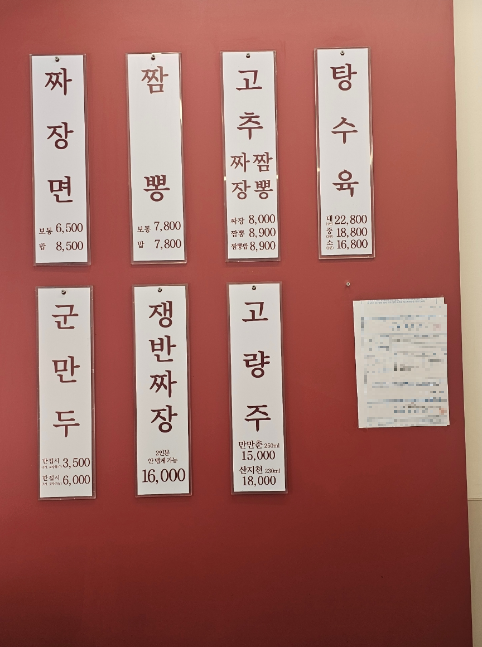 짜장면
보통 6,500
밥 8,500
짬뽕
보통 7,800
밥 7,800
고추
짜장 짬뽕
짜장 8,000
짬뽕 8,900
짬뽕밥 8,900
탕수육
대 22,800
중 18,800
소 16,800
군만두
반접시 3,500
한접시 6,000
쟁반짜장
2인분
안 맵게 가능
16,000
고량주
만만춘 250ml
15,000
산지천 230ml
18,000